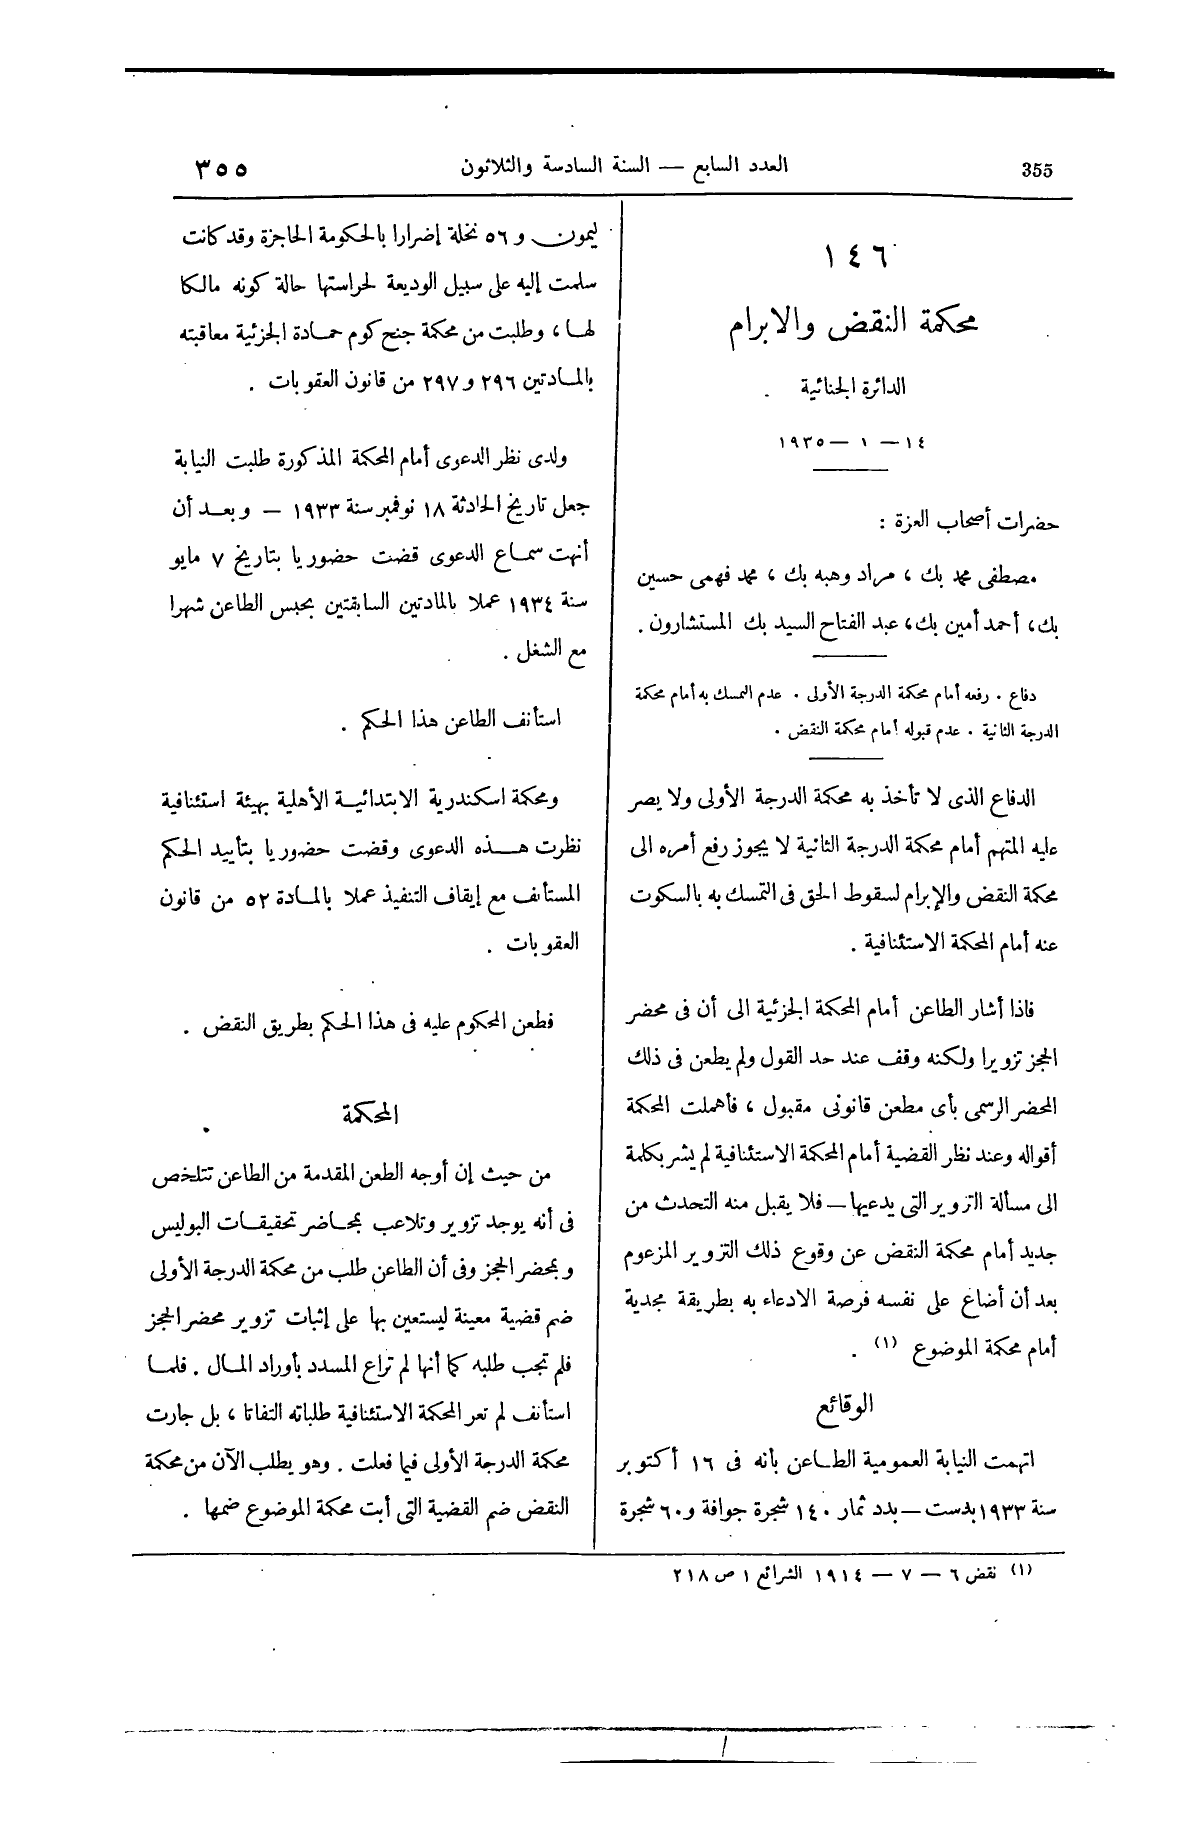 355
العدد السابع — السنة السادسة والثلاثون
٣٥٥
١٤٦
محكمة النقض والابرام
الدائرة الجنائية
١٤ — ١ — ١٩٣٥
حضرات أصحاب العزة :
مصطفى محمد بك ، مراد وهبه بك ، محمد فهمى حسين
بك ، أحمد أمين بك ، عبد الفتاح السيد بك المستشارون .
دفاع . رفعه أمام محكمة الدرجة الأولى . عدم التمسك به أمام محكمة
الدرجة الثانية . عدم قبوله أمام محكمة النقض .
الدفاع الذى لا تأخذ به محكمة الدرجة الأولى ولا يصر
عليه المتهم أمام محكمة الدرجة الثانية لا يجوز رفع أمره الى
محكمة النقض والإبرام لسقوط الحق فى التمسك به بالسكوت
عنه أمام المحكمة الاستئنافية .
فاذا أشار الطاعن أمام المحكمة الجزئية الى أن فى محضر
الحجز تزويرا ولكنه وقف عند حد القول ولم يطعن فى ذلك
المحضر الرسمى بأى مطعن قانونى مقبول ، فأهملت المحكمة
أقواله وعند نظر القضية أمام المحكمة الاستئنافية لم يشر بكلمة
الى مسألة التزوير التى يدعيها — فلا يقبل منه التحدث من
جديد أمام محكمة النقض عن وقوع ذلك التزوير المزعوم
بعد أن أضاع على نفسه فرصة الادعاء به بطريقة مجدية
أمام محكمة الموضوع (١) .
الوقائع
اتهمت النيابة العمومية الطاعن بأنه فى ١٦ أكتوبر
سنة ١٩٣٣ بدست — بدد ثمار ١٤٠ شجرة جوافة و ٦٠ شجرة
ليمون و ٥٦ نخلة إضرارا بالحكومة الحاجزة وقد كانت
سلمت إليه على سبيل الوديعة لحراستها حالة كونه مالكا
لها ، وطلبت من محكمة جنح كوم حمادة الجزئية معاقبته
بالمادتين ٢٩٦ و ٢٩٧ من قانون العقوبات .
ولدى نظر الدعوى أمام المحكمة المذكورة طلبت النيابة
جعل تاريخ الحادثة ١٨ نوفمبر سنة ١٩٣٣ — وبعد أن
أنهت سماع الدعوى قضت حضوريا بتاريخ ٧ مايو
سنة ١٩٣٤ عملا بالمادتين السابقتين بحبس الطاعن شهرا
مع الشغل .
استأنف الطاعن هذا الحكم .
ومحكمة اسكندرية الابتدائية الأهلية بهيئة استئنافية
نظرت هذه الدعوى وقضت حضوريا بتأييد الحكم
المستأنف مع إيقاف التنفيذ عملا بالمادة ٥٢ من قانون
العقوبات .
فطعن المحكوم عليه فى هذا الحكم بطريق النقض .
المحكمة
من حيث إن أوجه الطعن المقدمة من الطاعن تتلخص
فى أنه يوجد تزوير وتلاعب بمحاضر تحقيقات البوليس
وبمحضر الحجز وفى أن الطاعن طلب من محكمة الدرجة الأولى
ضم قضية معينة ليستعين بها على إثبات تزوير محضر الحجز
فلم تجب طلبه كما أنها لم تراع المسدد بأوراد المال . فلما
استأنف لم تعر المحكمة الاستئنافية طلباته التفاتا ، بل جارت
محكمة الدرجة الأولى فيما فعلت . وهو يطلب الآن من محكمة
النقض ضم القضية التى أبت محكمة الموضوع ضمها .
(١) نقض ٦ — ٧ — ١٩١٤ الشرائع ١ ص ٢١٨